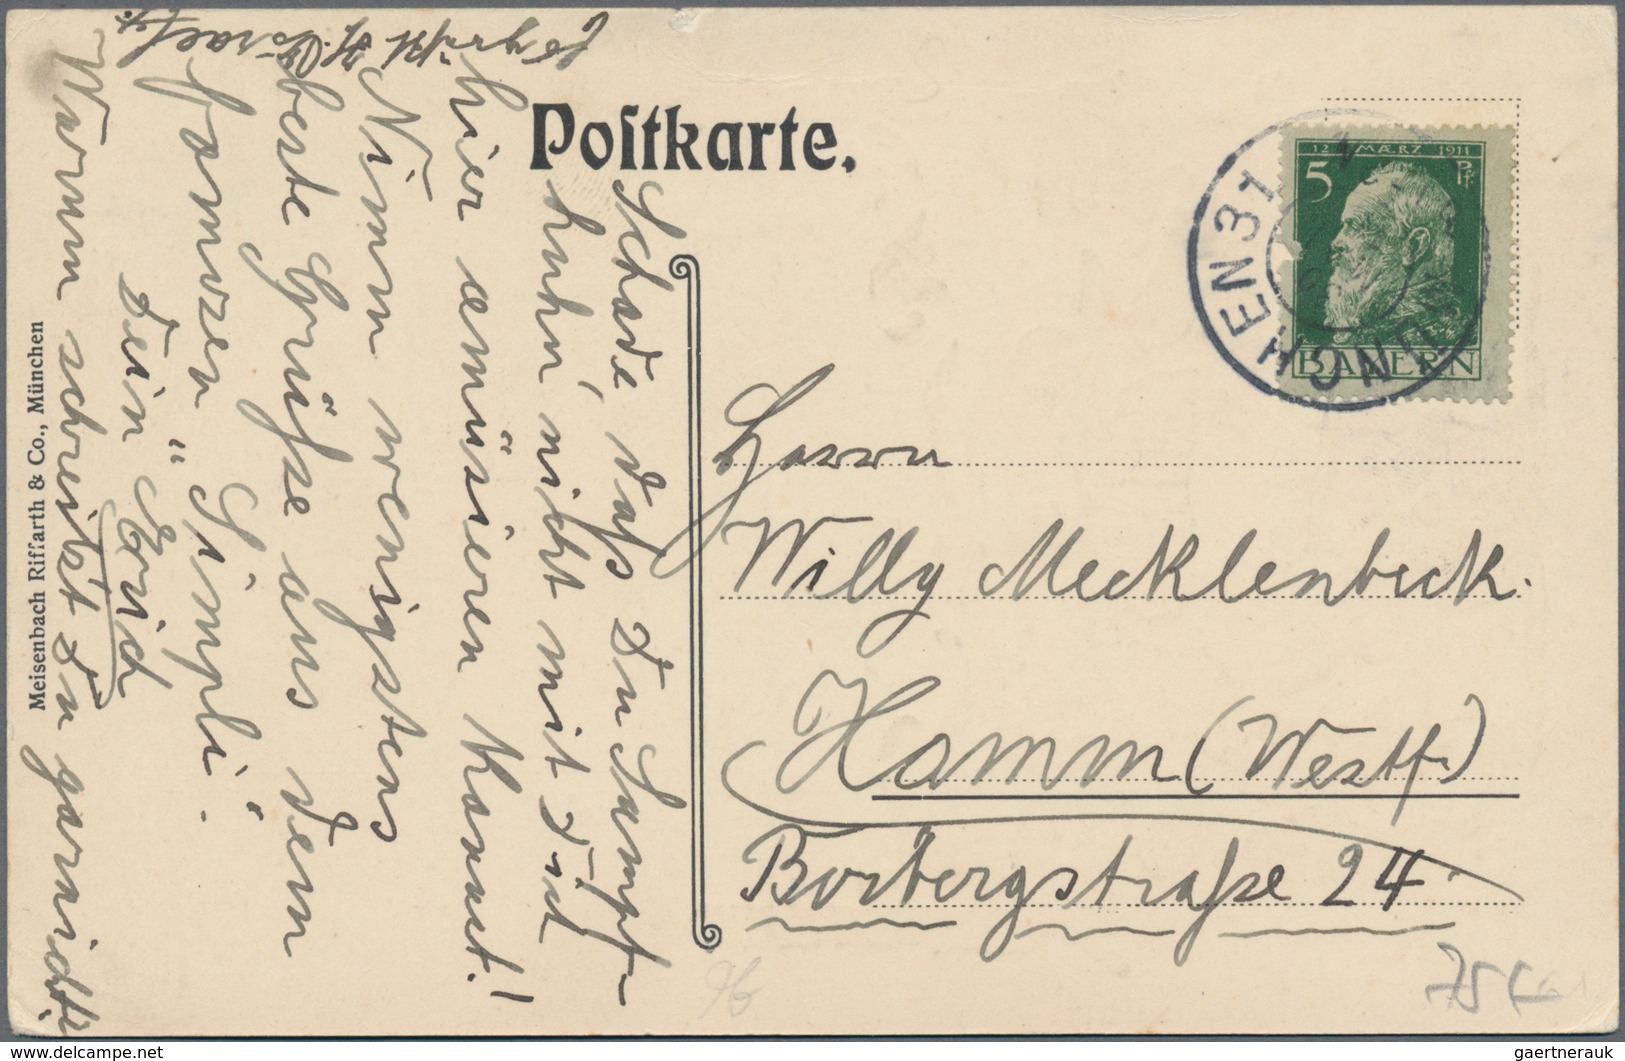 Postkarte.
12 MÆRZ 1911
5 Pf.
BAYERN
MÜNCHEN 31
Herrn
Willy Mecklenbeck.
Hamm (Westf.)
Borbergstraße 24.
Schade, daß Du Sumpf-
huhn' nicht mit Dich
hier amüsieren kannst!
Nimm wenigstens
beste Grüße aus dem
famosen "Simpli".
Dein Erich
Warum schreibst Du garnicht?
H.
Meisenbach Riffarth & Co., München
75
gaertnerauk